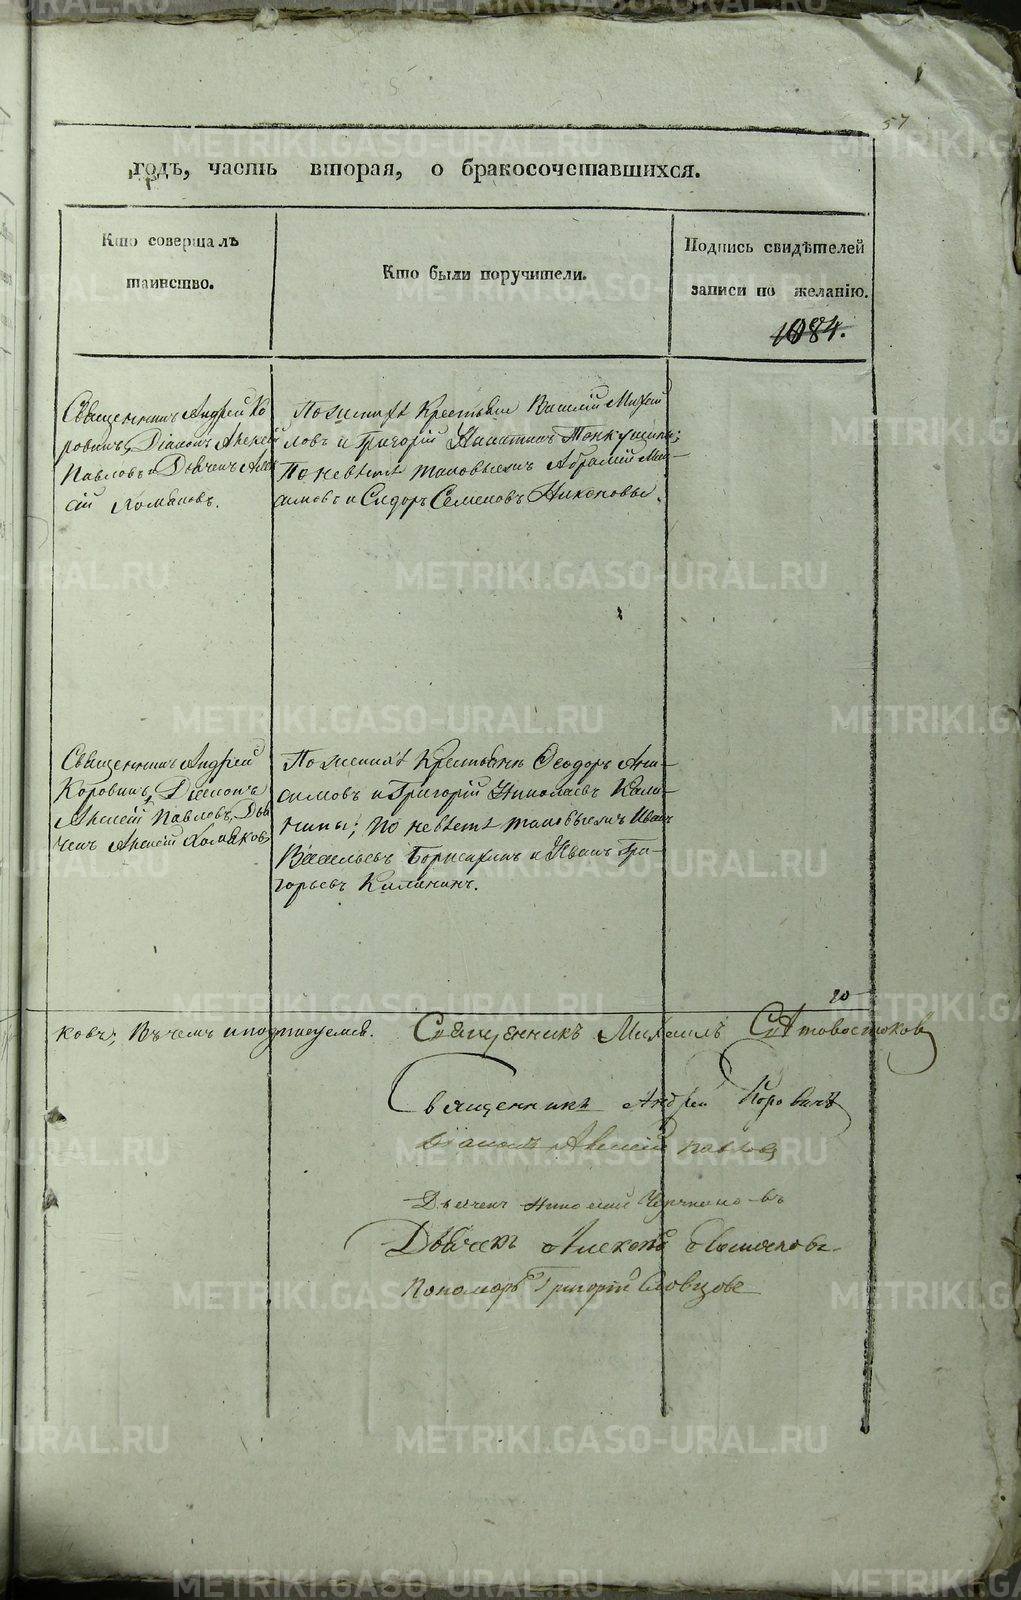 57
годъ, часть вторая, о бракосочетавшихся.
Кто совершалъ таинство.
Кто были поручители.
Подпись свидѣтелей записи по желанію.
1084.
Священникъ Андрей Ко
ровинъ, Діаконъ Алексей
Павловъ и Дьячекъ Алек
сій Хомяковъ.
По женихѣ Крестьяне Василій Михай
ловъ и Григорій Никитинъ
По невѣстѣ таковыежъ Абрамъ Мак-
симовъ и Сидоръ Семеновъ Никоновы.
Священникъ Андрей
Коровинъ, Діаконъ
Алексій Павловъ, Дья
чекъ Алексій Хомяковъ
По женихѣ Крестьяне Феодоръ Ани-
симовъ и Григорій Николаевъ Кали-
нины; по невѣстѣ таковыежъ Иванъ
Васильевъ и Иванъ Гри-
горьевъ Калининъ.
ковъ; Въ чемъ и подписуемся.
Священникъ Михаилъ Святовостоков
Священникъ Андрей Коровинъ
Діаконъ Алексій Павлов
Дьячек Николай
Дьячекъ Алексей Хомяковъ
Пономарь Григорій Словцовъ
METRIKI.GASO-URAL.RU